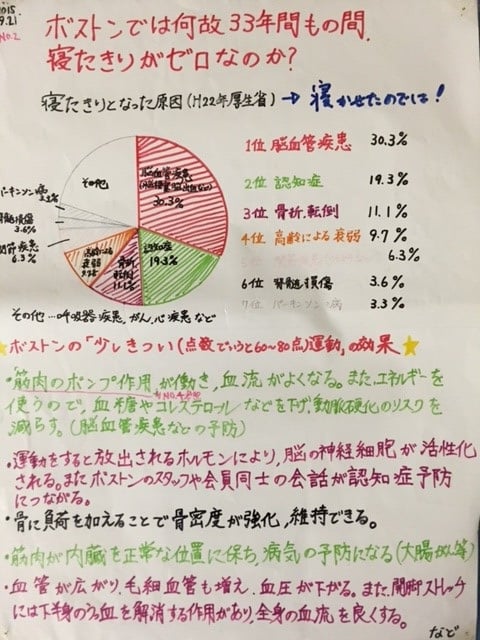 2015
9.21
No.2
ボストンでは何故33年間もの間、
寝たきりがゼロなのか?
寝たきりとなった原因(H22年厚生省)→寝かせたのでは!
その他
脳血管疾患
30.3%
認知症
19.3%
骨折、転倒
11.1%
高齢による衰弱
9.7%
関節疾患
6.3%
脊髄損傷
3.6%
パーキンソン病
1位 脳血管疾患 30.3%
2位 認知症 19.3%
3位 骨折、転倒 11.1%
4位 高齢による衰弱 9.7%
6.3%
6位 脊髄損傷 3.6%
7位 パーキンソン病 3.3%
その他…呼吸器疾患、がん、心疾患など
★ボストンの「少しきつい(点数でいうと60~80点)運動」の効果★
・筋肉のポンプ作用が働き、血流がよくなる。また、エネルギーを
使うので、血糖やコレステロールなどを下げ、動脈硬化のリスクを
減らす。(脳血管疾患などの予防)
・運動をすると放出されるホルモンにより、脳の神経細胞が活性化
される。またボストンのスタッフや会員同士の会話が認知症予防
につながる。
・骨に負荷を加えることで骨密度が強化、維持できる。
・筋肉が内臓を正常な位置に保ち、病気の予防になる(大腸がん等)
・血管が広がり、毛細血管も増え、血圧が下がる。また、開脚ストレッチ
には下半身のうっ血を解消する作用があり、全身の血流を良くする。
など